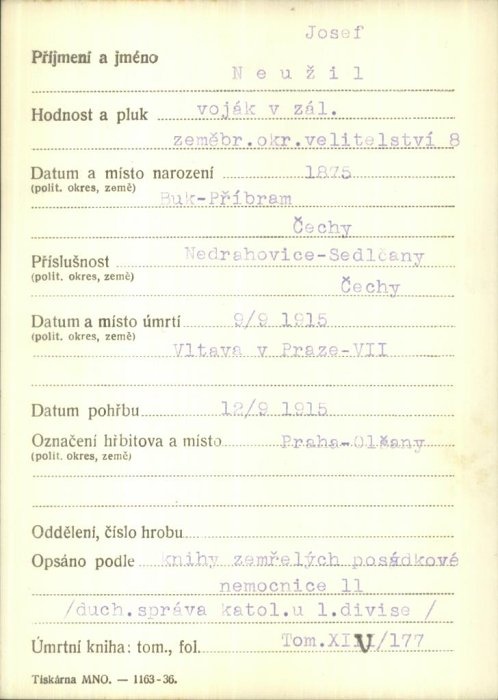 Josef
Příjmení a jméno
Neužil
Hodnost a pluk voják v zál.
zeměbr.okr.velitelství 8
Datum a místo narození 1875
(polit. okres, země)
Buk-Příbram
Čechy
Příslušnost Nedrahovice-Sedlčany
(polit. okres, země)
Čechy
Datum a místo úmrtí 9/9 1915
(polit. okres, země)
Vltava v Praze-VII
Datum pohřbu 12/9 1915
Označení hřbitova a místo Praha-Olšany
(polit. okres, země)
Oddělení, číslo hrobu
Opsáno podle knihy zemřelých posádkové
nemocnice 11
/duch.správa katol.u 1.divise /
Úmrtní kniha: tom., fol. Tom.XIV/177
Tiskárna MNO. — 1163-36.